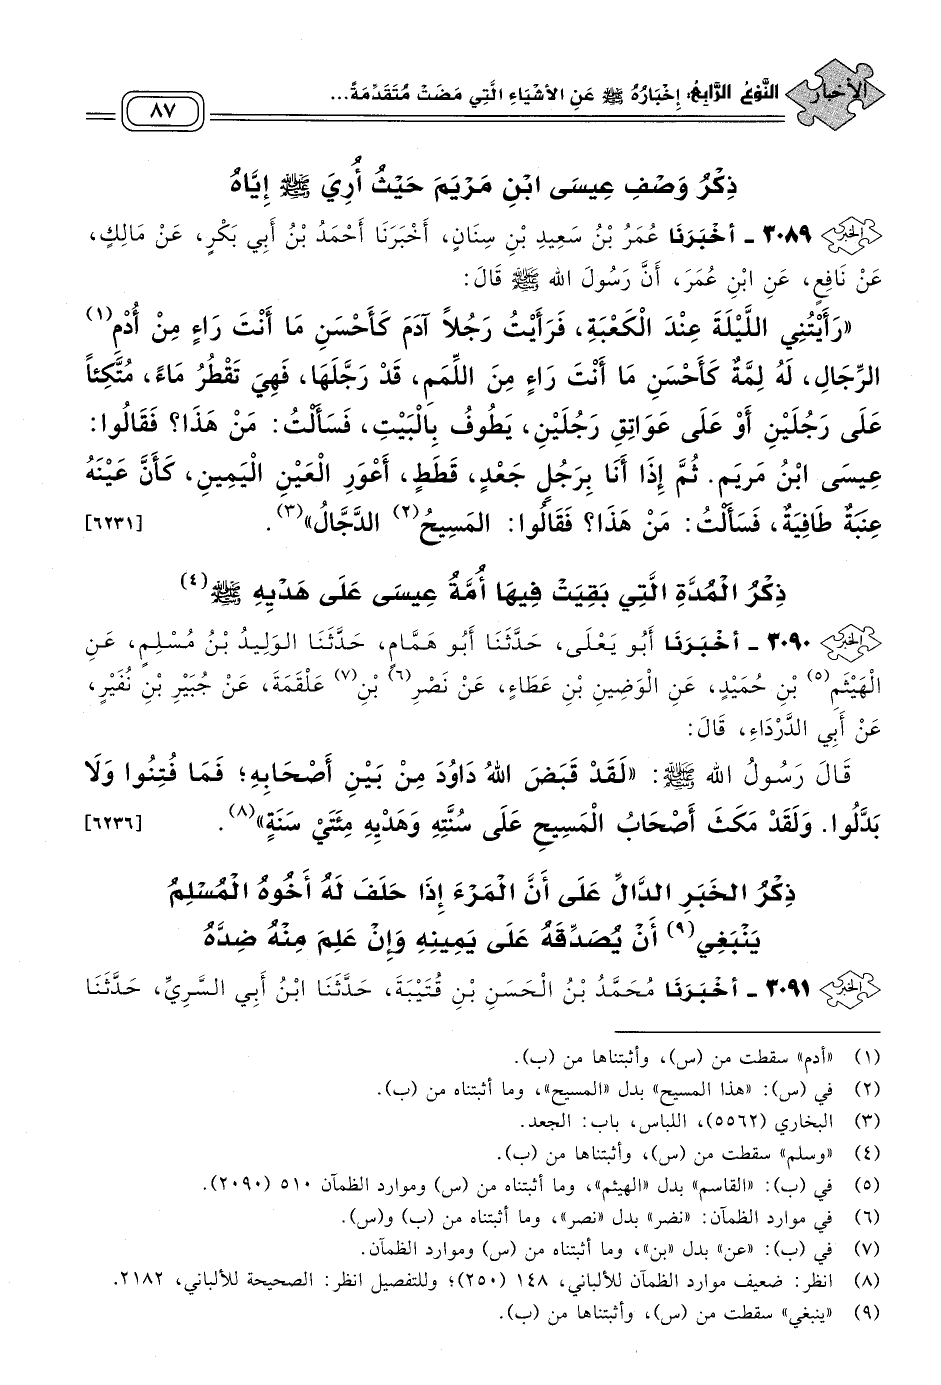 الأخبار
النَّوْعُ الرَّابِعُ: إِخْبَارُهُ ﷺ عَنِ الأَشْيَاءِ الَّتِي مَضَتْ مُتَقَدِّمَةً...
٨٧
ذِكْرُ وَصْفِ عِيسَى ابْنِ مَرْيَمَ حَيْثُ أُرِيَ ﷺ إِيَّاهُ
٣٠٨٩ - أَخْبَرَنَا عُمَرُ بْنُ سَعِيدِ بْنِ سِنَانٍ، أَخْبَرَنَا أَحْمَدُ بْنُ أَبِي بَكْرٍ، عَنْ مَالِكٍ،
عَنْ نَافِعٍ، عَنِ ابْنِ عُمَرَ، أَنَّ رَسُولَ الله ﷺ قَالَ:
«رَأَيْتُنِي اللَّيْلَةَ عِنْدَ الْكَعْبَةِ، فَرَأَيْتُ رَجُلاً آدَمَ كَأَحْسَنِ مَا أَنْتَ رَاءٍ مِنْ أُدْمِ(١)
الرِّجَالِ، لَهُ لِمَّةٌ كَأَحْسَنِ مَا أَنْتَ رَاءٍ مِنَ اللِّمَمِ، قَدْ رَجَّلَهَا، فَهِيَ تَقْطُرُ مَاءً، مُتَّكِئاً
عَلَى رَجُلَيْنِ أَوْ عَلَى عَوَاتِقِ رَجُلَيْنِ، يَطُوفُ بِالْبَيْتِ، فَسَأَلْتُ: مَنْ هَذَا؟ فَقَالُوا:
عِيسَى ابْنُ مَرِيَم. ثُمَّ إِذَا أَنَا بِرَجُلٍ جَعْدٍ، قَطَطٍ، أَعْوَرِ الْعَيْنِ الْيَمِينِ، كَأَنَّ عَيْنَهُ
عِنَبَةٌ طَافِيَةٌ، فَسَأَلْتُ: مَنْ هَذَا؟ فَقَالُوا: المَسِيحُ(٢) الدَّجَّالُ»(٣). [٦٢٣١]
ذِكْرُ الْمُدَّةِ الَّتِي بَقِيَتْ فِيهَا أُمَّةُ عِيسَى عَلَى هَدْيِهِ ﷺ(٤)
٣٠٩٠ - أَخْبَرَنَا أَبُو يَعْلَى، حَدَّثَنَا أَبُو هَمَّامٍ، حَدَّثَنَا الوَلِيدُ بْنُ مُسْلِمٍ، عَنِ
الْهَيْثَمِ(٥) بْنِ حُمَيْدٍ، عَنِ الْوَضِينِ بْنِ عَطَاءٍ، عَنْ نَصْرِ(٦) بْنِ(٧) عَلْقَمَةَ، عَنْ جُبَيْرِ بْنِ نُفَيْرٍ،
عَنْ أَبِي الدَّرْدَاءِ، قَالَ:
قَالَ رَسُولُ الله ﷺ: «لَقَدْ قَبَضَ اللهُ دَاوُدَ مِنْ بَيْنِ أَصْحَابِهِ؛ فَمَا فُتِنُوا وَلَا
بَدَّلُوا. وَلَقَدْ مَكَثَ أَصْحَابُ الْمَسِيحِ عَلَى سُنَّتِهِ وَهَدْيِهِ مِئَتَيْ سَنَةٍ»(٨). [٦٢٣٦]
ذِكْرُ الخَبَرِ الدَّالِّ عَلَى أَنَّ الْمَرْءَ إِذَا حَلَفَ لَهُ أَخُوهُ الْمُسْلِمُ
يَنْبَغِي(٩) أَنْ يُصَدِّقَهُ عَلَى يَمِينِهِ وَإِنْ عَلِمَ مِنْهُ ضِدَّهُ
٣٠٩١ - أَخْبَرَنَا مُحَمَّدُ بْنُ الْحَسَنِ بْنِ قُتَيْبَةَ، حَدَّثَنَا ابْنُ أَبِي السَّرِيِّ، حَدَّثَنَا
(١) «أدم» سقطت من (س)، وأثبتناها من (ب).
(٢) في (س): «هذا المسيح» بدل «المسيح»، وما أثبتناه من (ب).
(٣) البخاري (٥٥٦٢)، اللباس، باب: الجعد.
(٤) «وسلم» سقطت من (س)، وأثبتناها من (ب).
(٥) في (ب): «القاسم» بدل «الهيثم»، وما أثبتناه من (س) وموارد الظمآن ٥١٠ (٢٠٩٠).
(٦) في موارد الظمآن: «نضر» بدل «نصر»، وما أثبتناه من (ب) و(س).
(٧) في (ب): «عن» بدل «بن»، وما أثبتناه من (س) وموارد الظمآن.
(٨) انظر: ضعيف موارد الظمآن للألباني، ١٤٨ (٢٥٠)؛ وللتفصيل انظر: الصحيحة للألباني، ٢١٨٢.
(٩) «ينبغي» سقطت من (س)، وأثبتناها من (ب).